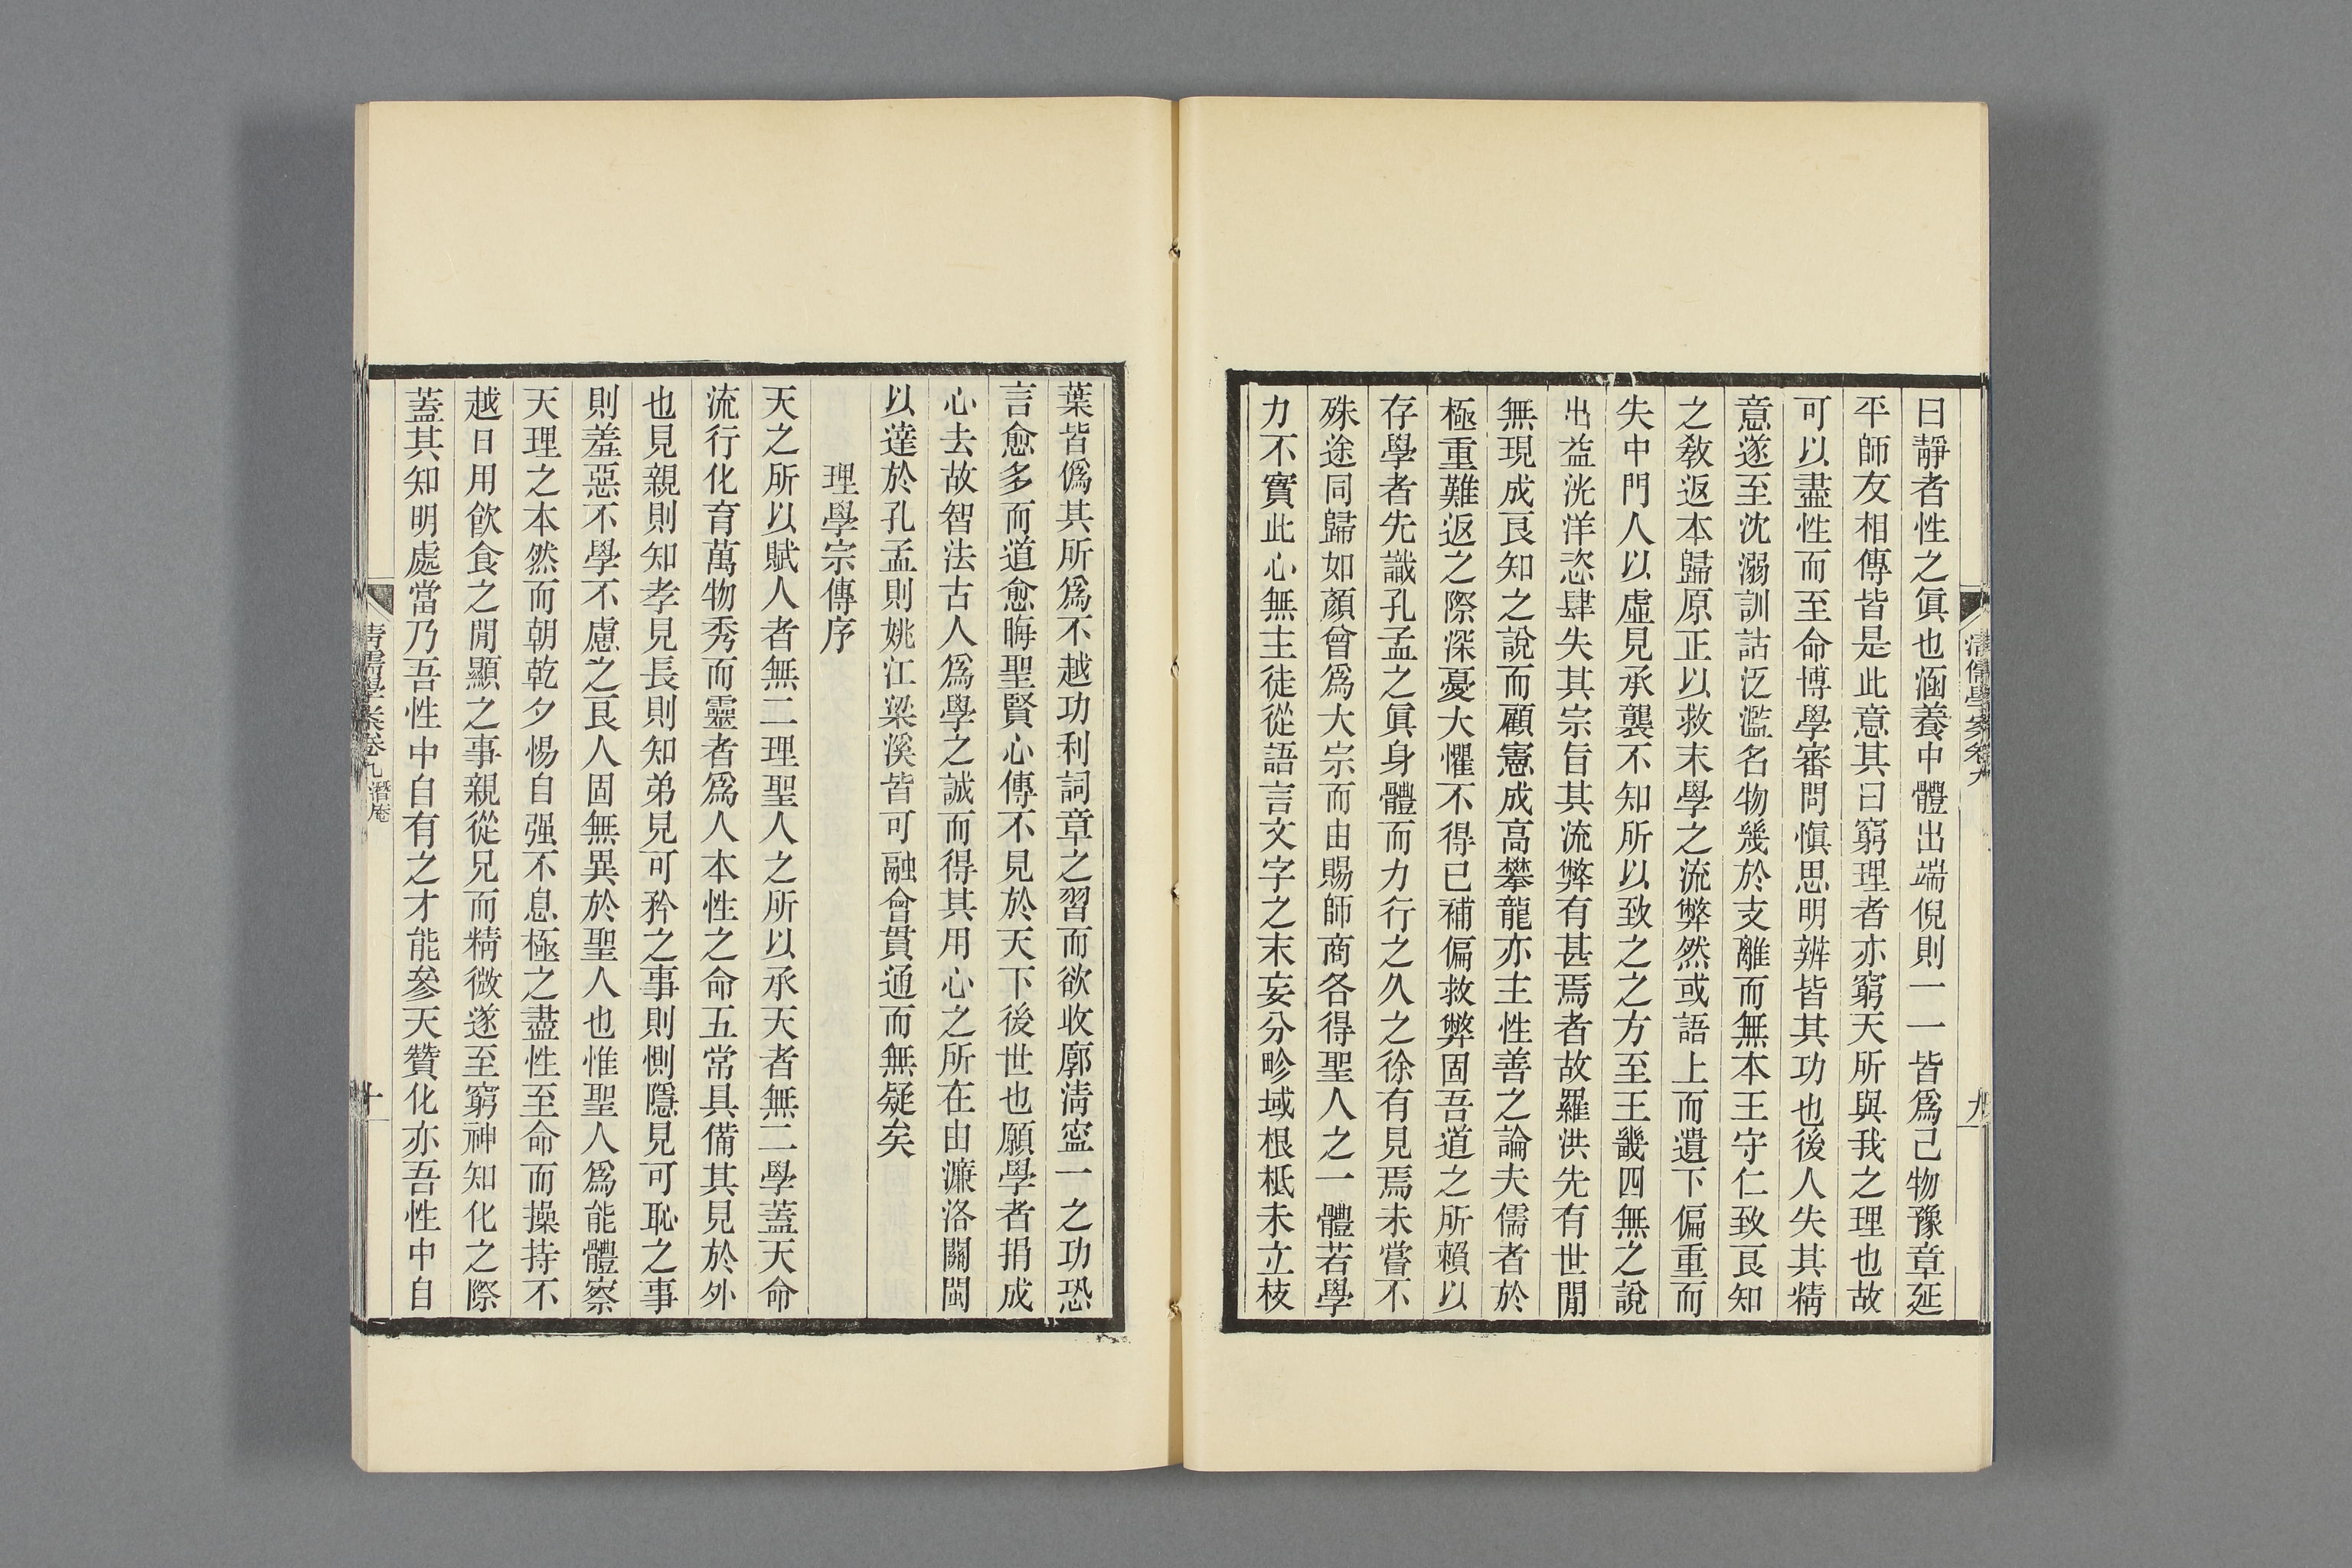 清儒學案卷九
九
曰靜者性之眞也涵養中體出端倪則一一皆爲己物豫章延
平師友相傳皆是此意其曰窮理者亦窮天所與我之理也故
可以盡性而至命博學審問愼思明辨皆其功也後人失其精
意遂至沈溺訓詁泛濫名物幾於支離而無本王守仁致良知
之敎返本歸原正以救末學之流弊然或語上而遺下偏重而
失中門人以虛見承襲不知所以致之之方至王畿四無之說
出益洸洋恣肆失其宗旨其流弊有甚焉者故羅洪先有世閒
無現成良知之說而顧憲成高攀龍亦主性善之論夫儒者於
極重難返之際深憂大懼不得已補偏救弊固吾道之所賴以
存學者先識孔孟之眞身體而力行之久之徐有見焉未嘗不
殊途同歸如顏曾爲大宗而由賜師商各得聖人之一體若學
力不實此心無主徒從語言文字之末妄分畛域根柢未立枝
葉皆僞其所爲不越功利詞章之習而欲收廓淸寍一之功恐
言愈多而道愈晦聖賢心傳不見於天下後世也願學者捐成
心去故智法古人爲學之誠而得其用心之所在由濂洛關閩
以達於孔孟則姚江梁溪皆可融會貫通而無疑矣
理學宗傳序
天之所以賦人者無二理聖人之所以承天者無二學蓋天命
流行化育萬物秀而靈者爲人本性之命五常具備其見於外
也見親則知孝見長則知弟見可矜之事則惻隱見可恥之事
則羞惡不學不慮之良人固無異於聖人也惟聖人爲能體察
天理之本然而朝乾夕惕自强不息極之盡性至命而操持不
越日用飮食之閒顯之事親從兄而精微遂至窮神知化之際
蓋其知明處當乃吾性中自有之才能參天贊化亦吾性中自
清儒學案卷九 潛庵
十